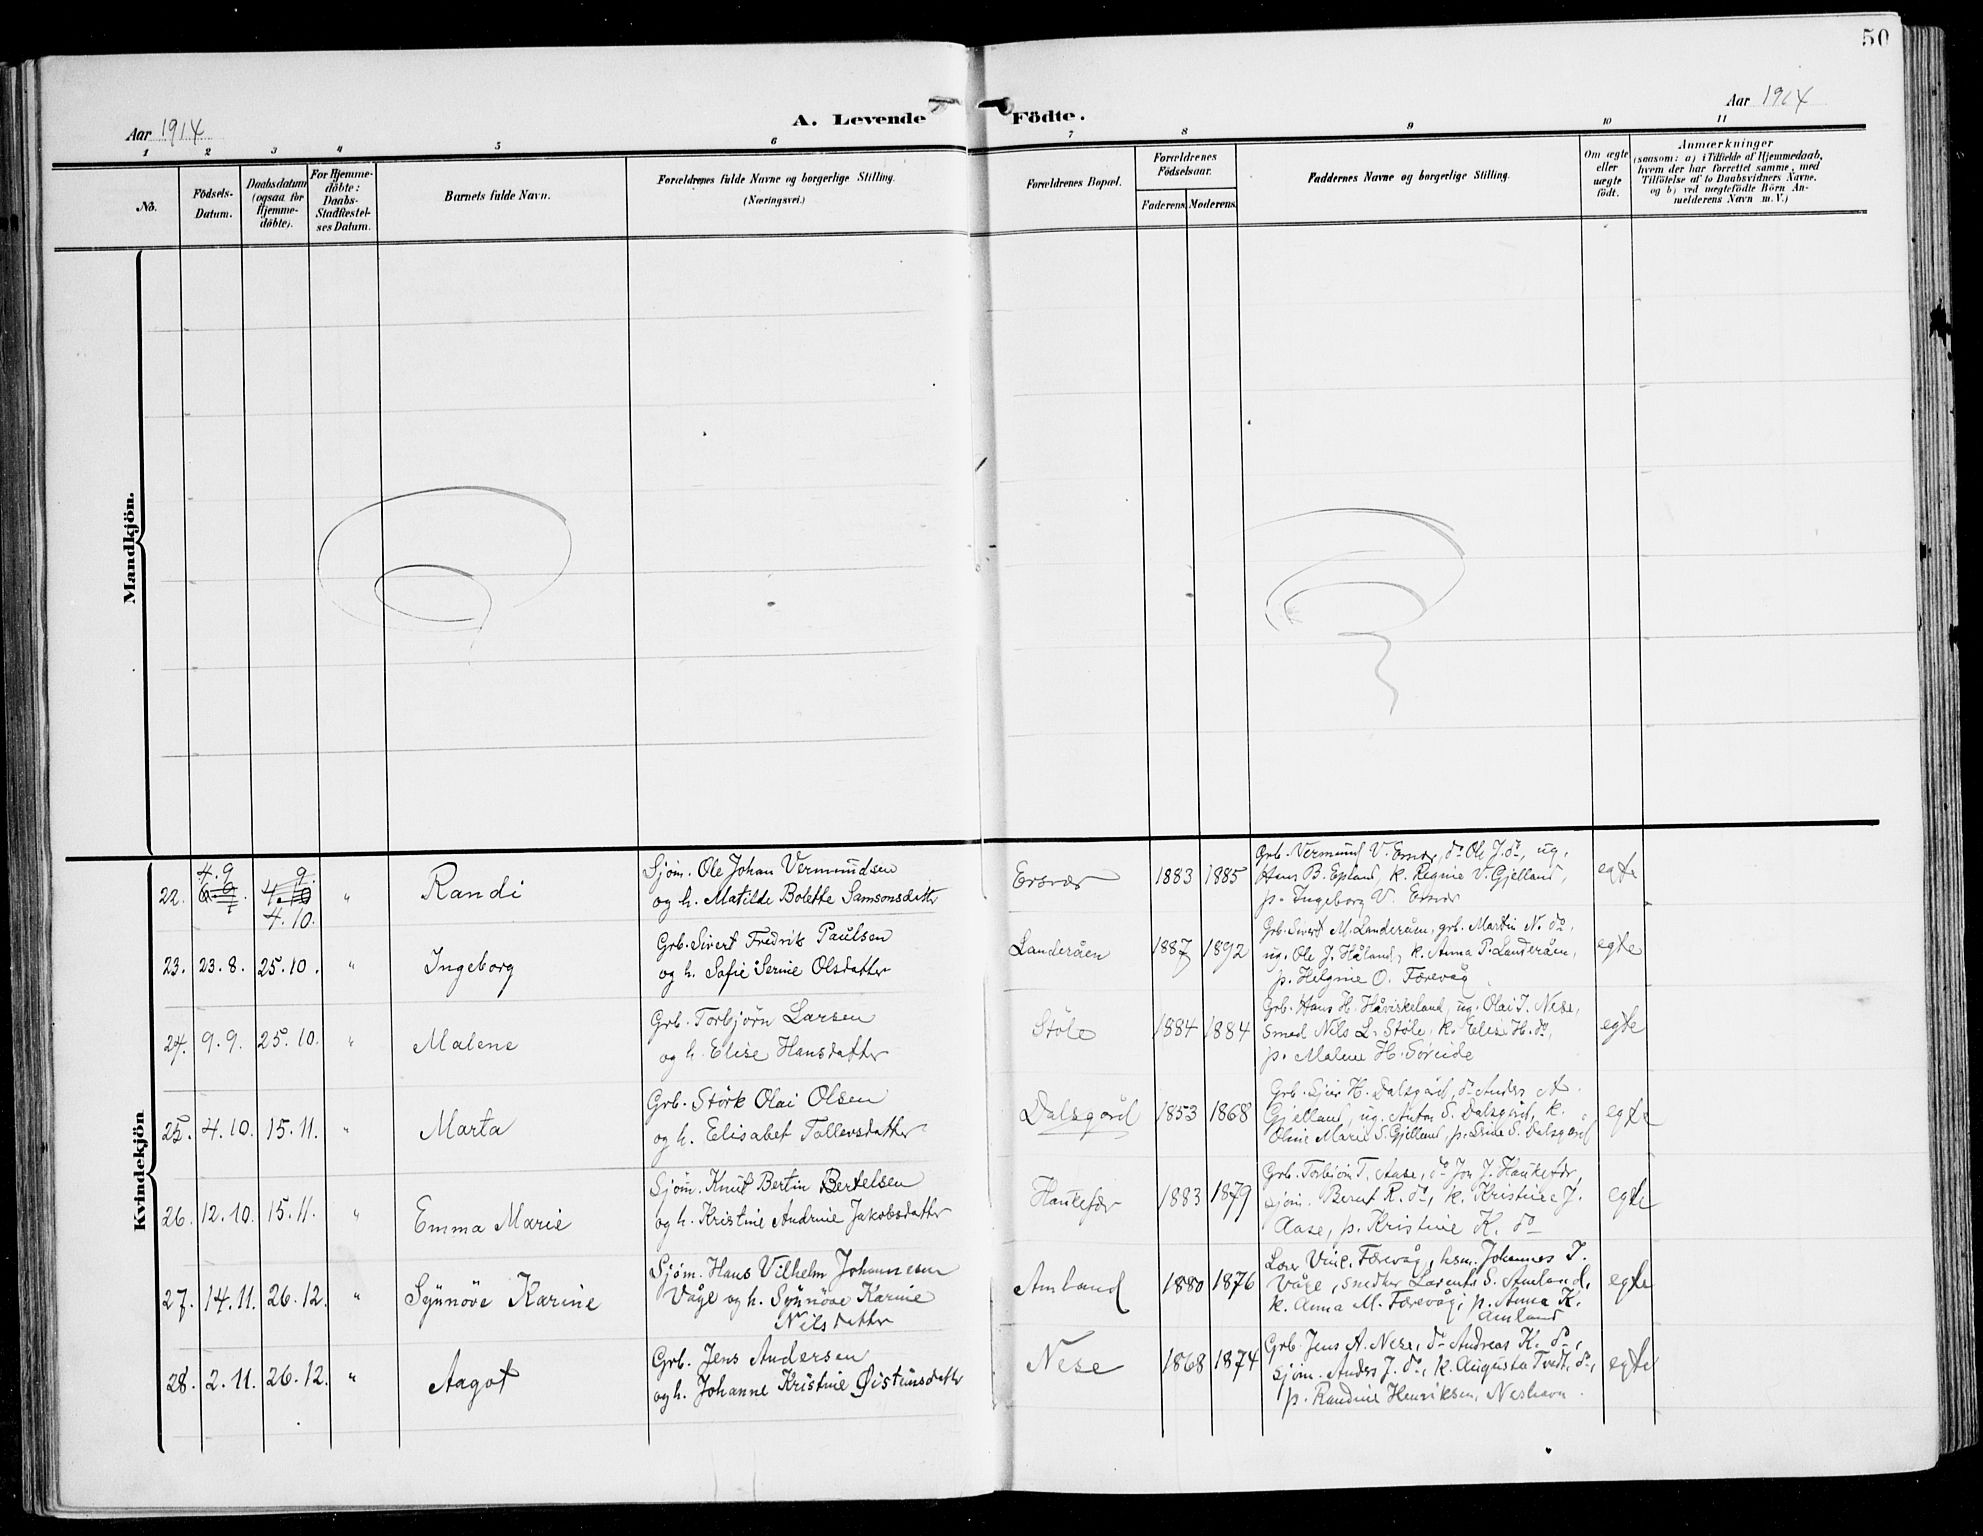 50
Aar 1914
A. Levende
Födte.
Aar 1914
1 2 3 4 5 6 7 8 9 10 11
No.
Födsels-
Datum.
Daabsdatum
(ogsaa for
Hjemme-
döbte).
For Hjemme-
döbte:
Daabs-
Stadfæstel-
ses Datum.
Barnets fulde Navn.
Forældrenes fulde Navne og borgerlige Stilling.
(Næringsvei.)
Forældrenes Bopæl.
Forældrenes
Födselsaar.
Faderens. Moderens.
Faddernes Navne og borgerlige Stilling.
Om ægte
eller
uægte
födt.
Anmærkninger
(saasom: a) i Tilfælde af Hjemmedaab,
hvem der har forrettet samme, med
Tilföielse af to Daabsvidners Navne.
og b) ved uægtefödte Börn An-
melderens Navn m. V.)
Mandkjön.
Kvindekjön
22. 4.9 4.10. " Randi
Sjøm. Ole Johan Vermundsen
og h. Matilde Bolette Samsonsdatter
Ersvær 1883 1885
Grb. Vermund V. Ersvær, do Ole J. do, ug.
Hans B. Epland, k. Regine V. Gjelland,
p. Ingeborg V. Ersvær
egte
23. 23.8. 25.10. " Ingeborg
Grb. Sivert Fredrik Paulsen
og h. Sofie Serine Olsdatter
Landeråen 1887 1892
Grb. Sivert M. Landeråen, grb. Martin N. do,
ug. Ole J. Håland, k. Anna P. Landeråen,
p. Helgine O. Færevåg
egte
24. 9.9. 25.10. " Malene
Grb. Torbjørn Larsen
og h. Elise Hansdatter
Støle 1884 1884
Grb. Hans H. Håviskeland, ug. Olai I. Nese,
smed Nils L. Støle, k. Elise H. do,
p. Malene H. Søreide
egte
25. 4.10. 15.11. " Marta
Grb. Störk Olai Olsen
og h. Elisabet Tollevsdatter
Dalsgård 1853 1868
Grb. Sjur H. Dalsgård, do Anders A.
Gjelland, ug. Anton S. Dalsgård, k.
Oline Marie S. Gjelland, p. Lrine S. Dalsgård
egte
26. 12.10. 15.11. " Emma Marie
Sjøm. Knut Bertin Bertelsen
og h. Kristine Andrine Jakobsdatter
Haukefær 1883 1879
Grb. Torbjörn T. Aase, do Jon J. Haukefær,
sjøm. Bernt R. do, k. Kristine J.
Aase, p. Kristine K. do
egte
27. 14.11. 26.12. " Synnöve Karine
Sjøm. Hans Vilhelm Johannesen
Våge og h. Synnöve Karine
Nilsdatter
Amland 1880 1876
Lærer Vinc. Færevåg, hsm. Johannes I.
Våge, snedker Larents S. Amland,
k. Anna M. Færevåg, p. Anna K.
Amland
egte
28. 2.11. 26.12. " Aagot
Grb. Jens Andersen
og h. Johanne Kristine Øisteinsdatter
Nese 1868 1874
Grb. Jens A. Nese, do Andreas K. do,
sjøm. Anders J. do, k. Augusta Tvedt, do,
p. Randine Henriksen, Neshavn.
egte